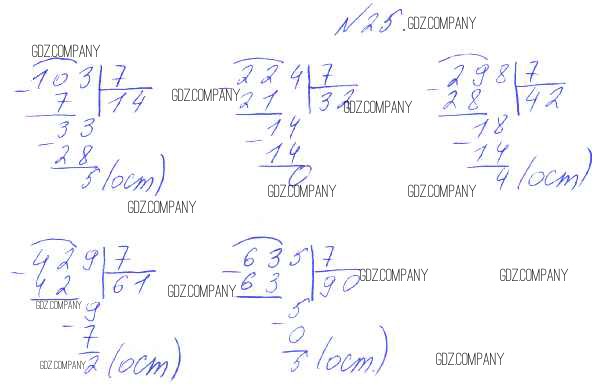 №25. GDZ.COMPANY
GDZ.COMPANY
103 | 7
7 | 14
33
28
5 (ост)
GDZ.COMPANY
224 | 7
21 | 32
14
14
0
GDZ.COMPANY
298 | 7
28 | 42
18
14
4 (ост)
GDZ.COMPANY
GDZ.COMPANY
GDZ.COMPANY
429 | 7
42 | 61
9
7
2 (ост)
GDZ.COMPANY
GDZ.COMPANY
GDZ.COMPANY
635 | 7
63 | 90
5
0
5 (ост.)
GDZ.COMPANY
GDZ.COMPANY
GDZ.COMPANY